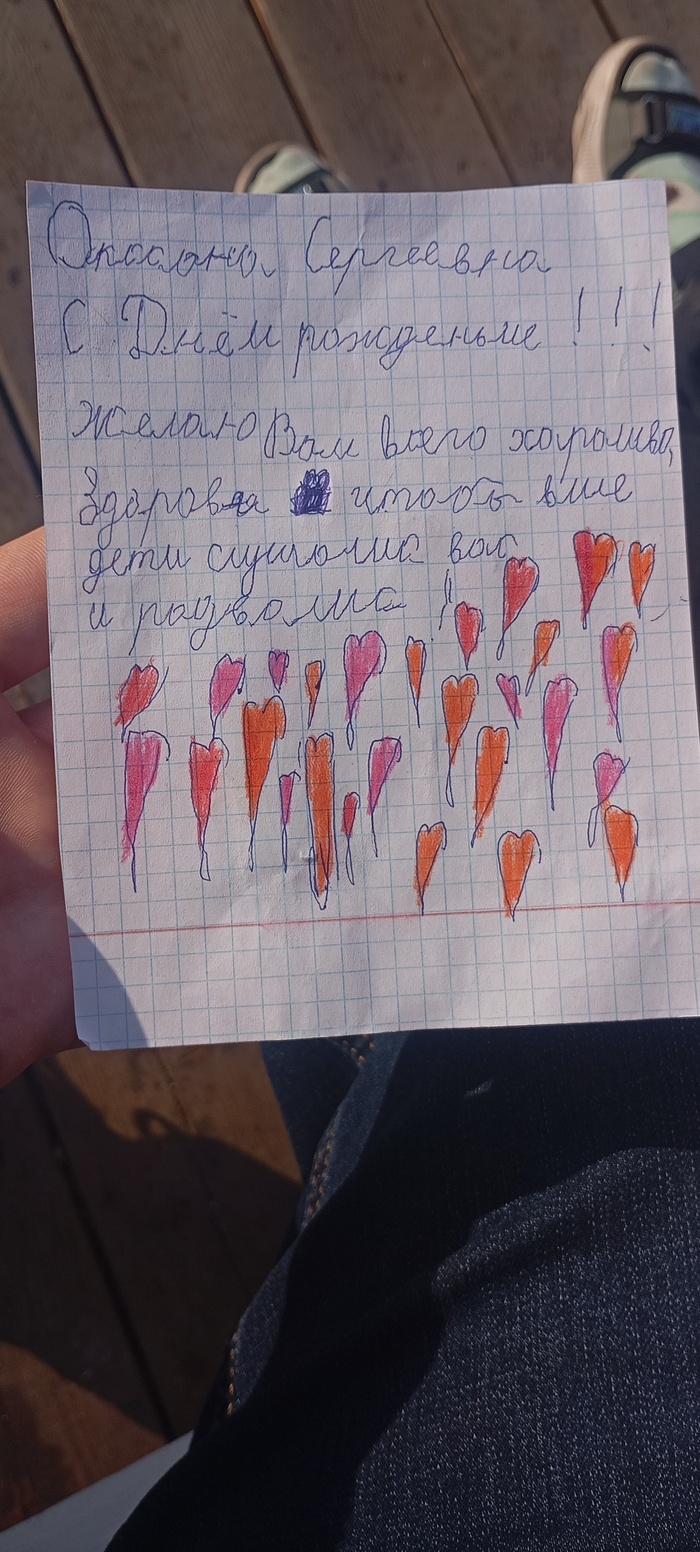 Оксана Сергеевна
С Днём рожденьме !!!
Желаю Вам всего харошева,
Здоровя чтобы вше
дети слушолис вас
и радволис !